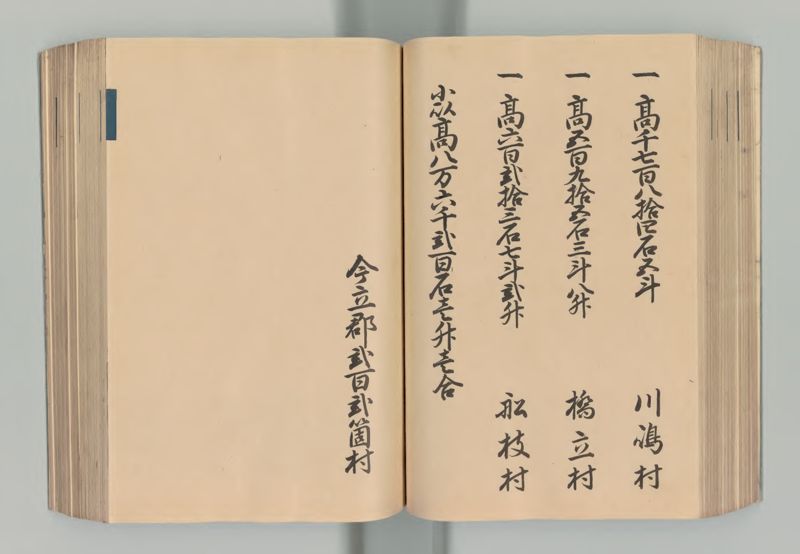 一 高千七百八拾四石五斗 川嶋村
一 高五百九拾五石三斗八升 橋立村
一 高六百弐拾三石七斗弐升 舩枝村
小以高八万六千弐百石壱升壱合
今立郡弐百弐箇村